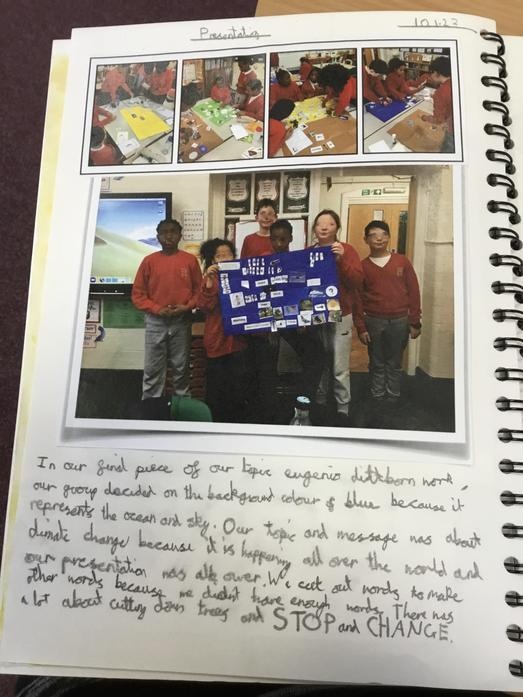 Presentation
10.1.23
In our final piece of our topic eugenio dittborn work,
our group decided on the background colour of blue because it
represents the ocean and sky. Our topic and message was about
climate change because it is happening all over the world and
our presentation was all over. We cut out words to make
other words because we didn't have enough words. There was
a lot about cutting down trees and STOP and CHANGE.